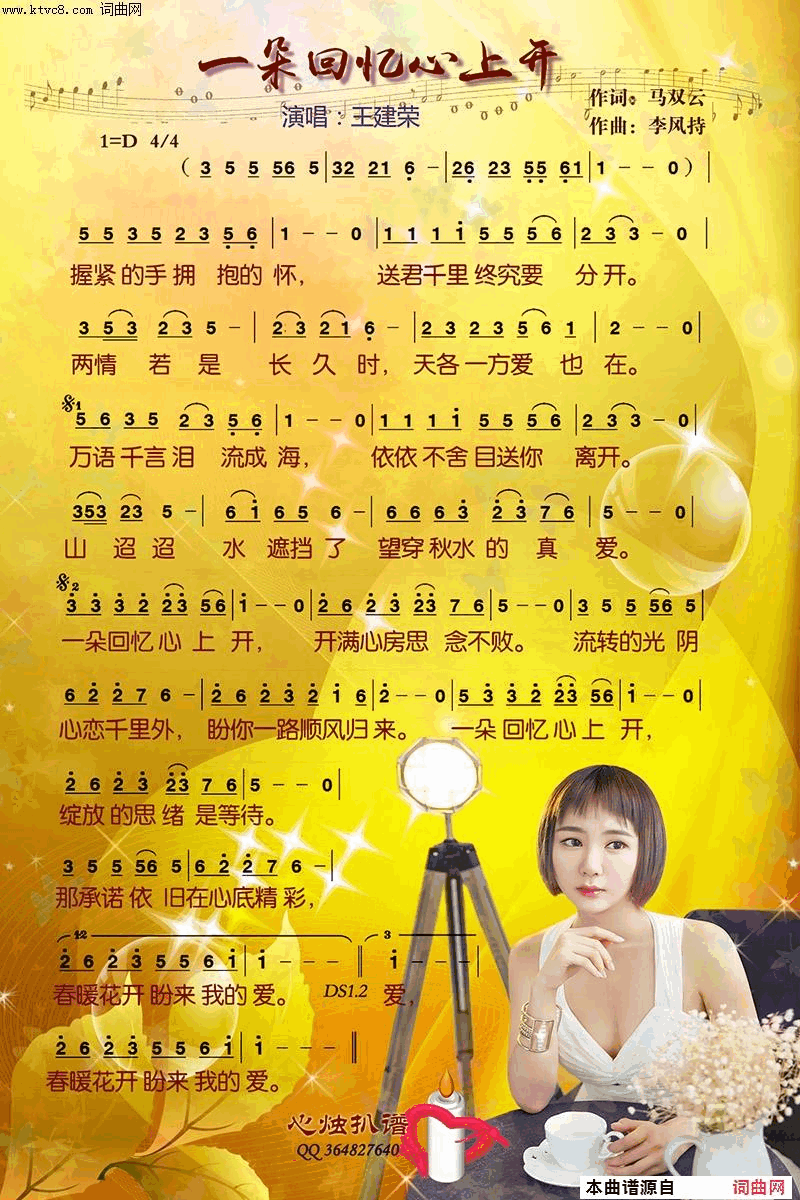 www.ktvc8.com 词曲网
一朵回忆心上开
作词：马双云
演唱：王建荣
作曲：李风持
1=D 4/4
（ 3 5 5 56 5 | 32 21 6 － | 26 23 55 61 | 1 － － 0 ）|
5 5 3 5 2 3 5 6 | 1 － － 0 | 1 1 1 i 5 5 5 6 | 2 3 3 － 0 |
握紧的手拥 抱的 怀， 送君千里终究要 分开。
3 5 3 2 3 5 － | 2 3 2 1 6 － | 2 3 2 3 5 6 1 | 2 － － 0 |
两情 若 是 长 久 时，天各一方爱 也 在。
5 6 3 5 2 3 5 6 | 1 － － 0 | 1 1 1 i 5 5 5 6 | 2 3 3 － 0 |
万语千言泪 流成 海， 依依不舍目送你 离开。
353 23 5 － | 6 i 6 5 6 － | 6 6 6 3 2 3 7 6 | 5 － － 0 |
山 迢 迢 水 遮挡 了 望穿秋水 的 真 爱。
3 3 3 2 23 56 | i － － 0 | 2 6 2 3 23 7 6 | 5 － － 0 | 3 5 5 56 5 |
一朵回忆 心 上 开， 开满心房思 念不败。 流转的光 阴
6 2 2 7 6 － | 2 6 2 3 2 i 6 | 2 － － 0 | 5 3 3 2 23 56 | i － － 0 |
心恋千里外， 盼你一路顺风归 来。 一朵 回忆 心 上 开，
2 6 2 3 23 7 6 | 5 － － 0 |
绽放 的思 绪 是等待。
3 5 5 56 5 | 6 2 2 7 6 － |
那承诺 依 旧在心底精 彩，
12 3
2 6 2 3 5 5 6 i | i － － － ‖ i － － － |
春暖花开 盼来 我的 爱。 DS1.2 爱，
2 6 2 3 5 5 6 i | i － － － ‖
春暖花开 盼来 我的 爱。
心烛扒谱
QQ 364827640
本曲谱源自 词曲网